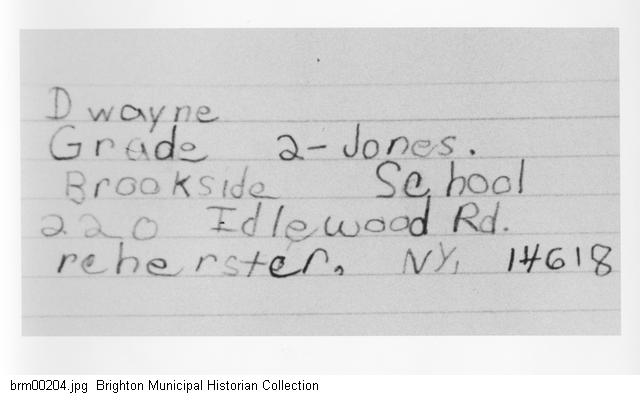 Dwayne
Grade 2-Jones.
Brookside School
220 Idlewood Rd.
reherster, NY, 14618
brm00204.jpg Brighton Municipal Historian Collection